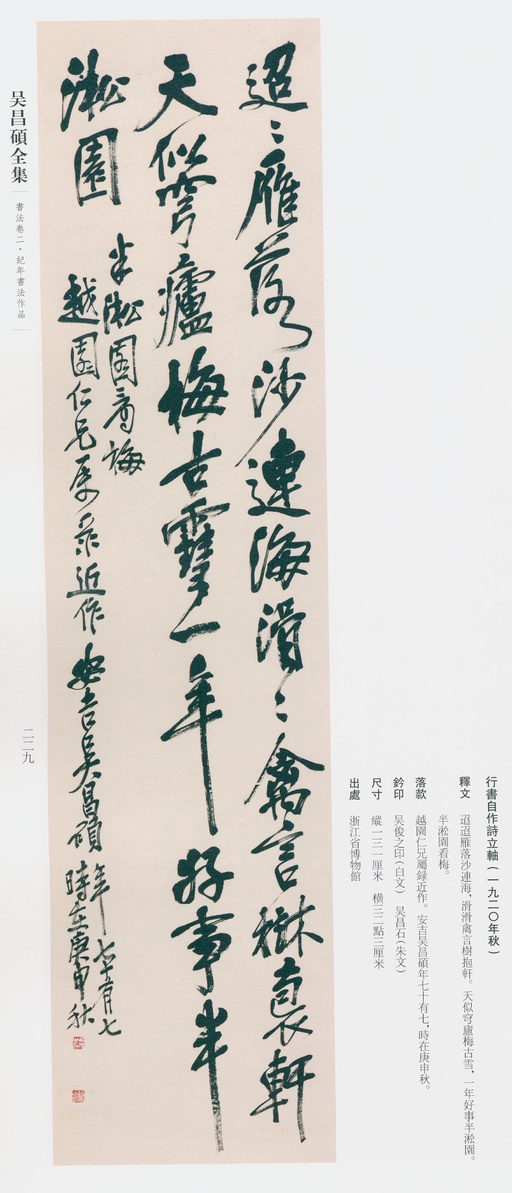 行書自作詩立軸（一九二〇年秋）
釋文　迢迢雁落沙連海，滑滑禽言樹抱軒。天似穹廬梅古雪，一年好事半淞園。
半淞園看梅。
落款　越園仁兄屬録近作。安吉吴昌碩年七十有七，時在庚申秋。
鈐印　吴俊之印（白文）　吴昌石（朱文）
尺寸　縱一三一厘米　横三二點三厘米
出處　浙江省博物館
迢〻雁落沙連海滑〻禽言樹袌軒
天似穹廬梅古雪一年好事半
淞園
半淞園看梅
越園仁兄属录近作安吉吴昌碩年七十有七
時在庚申秋
吴昌碩全集
書法卷二·紀年書法作品
二二九